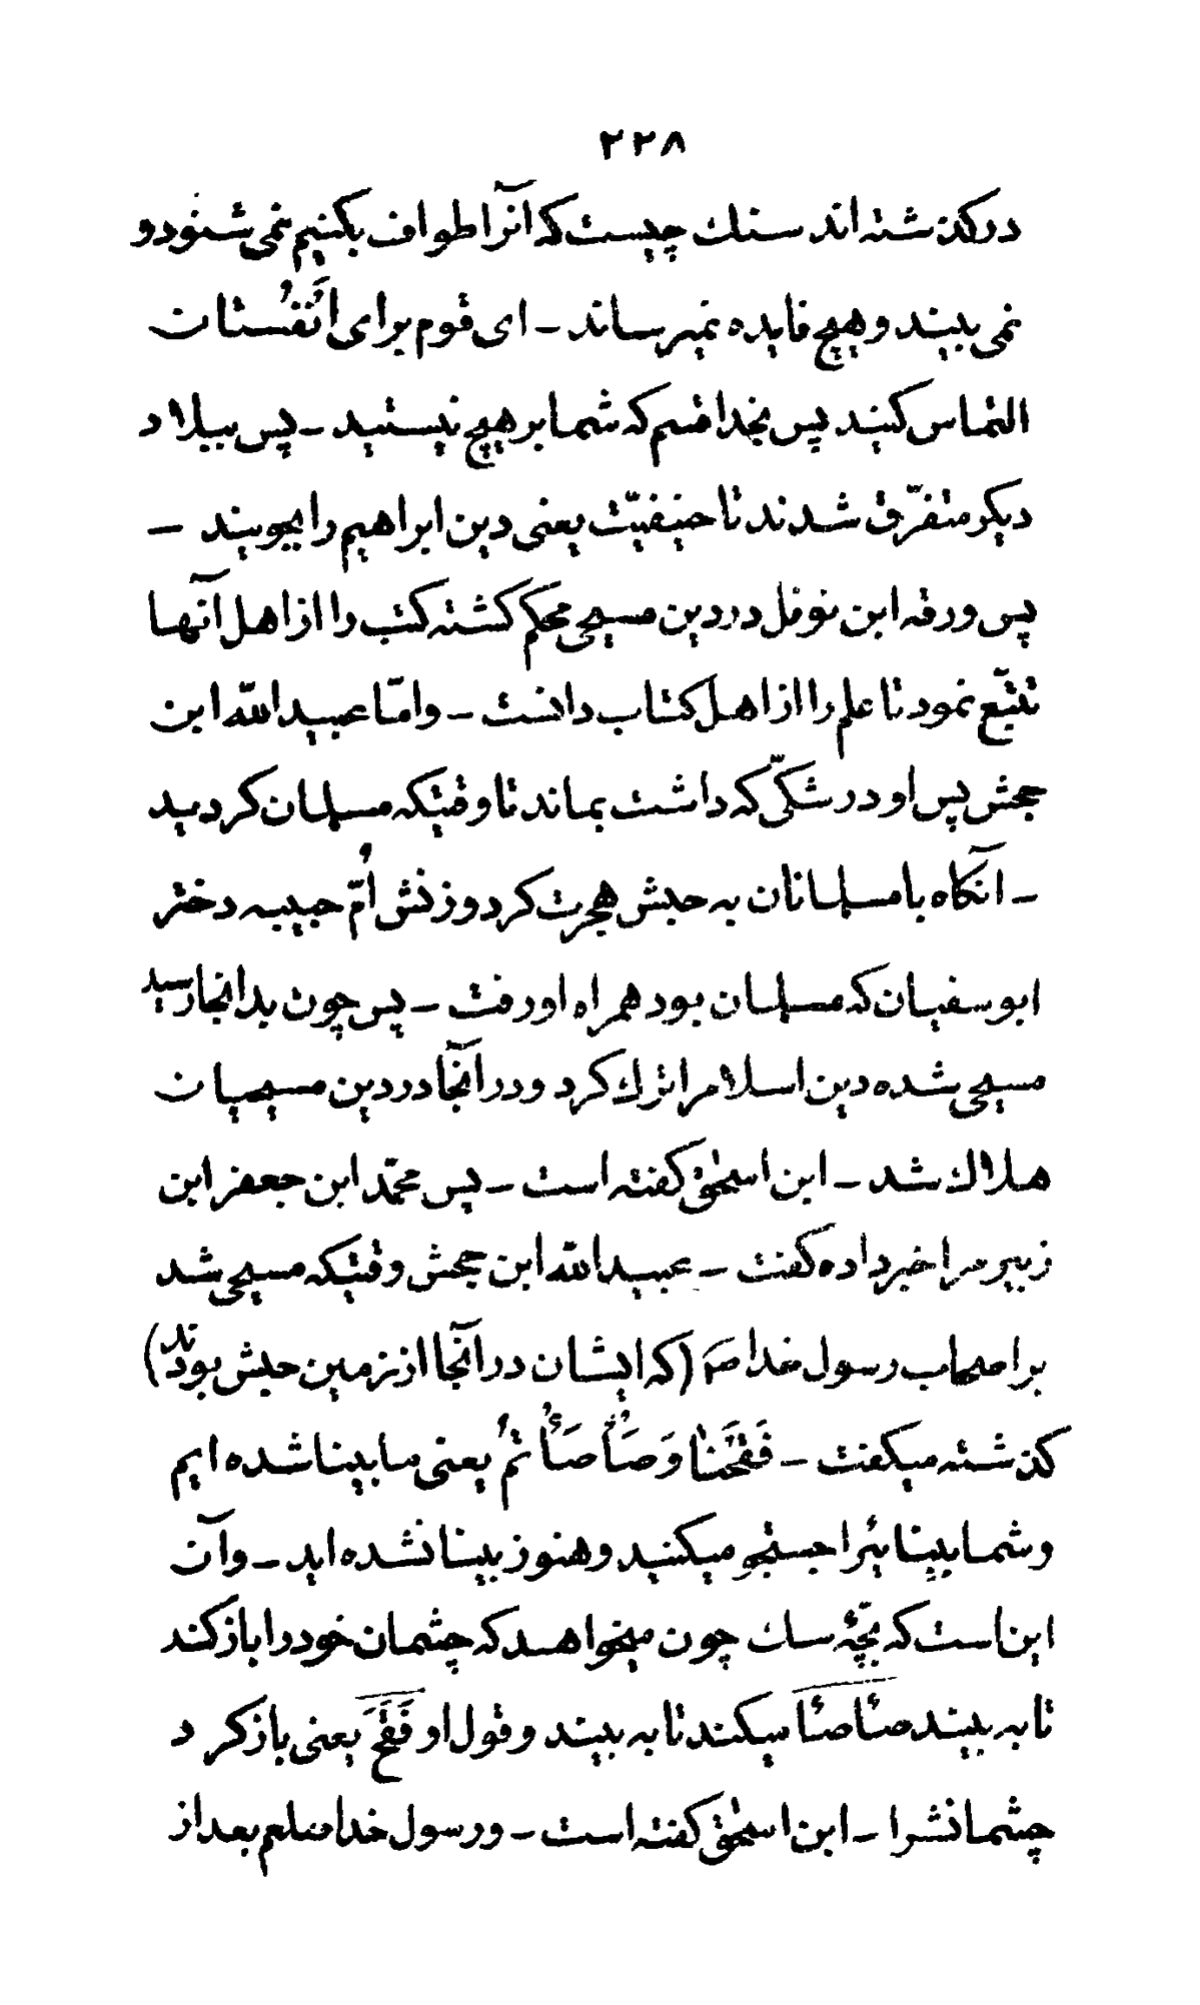 ۲۲۸
درگذشته‌اند سنك چیست که آنرا طواف بکنیم نمی شنود و
نمی بیند و هیچ فایده نمیرساند – ای قوم برای اَنْفُستان
التماس کنید پس بخدا قسم که شما بر هیچ نیستید – پس ببلاد
دیکر متفرّق شدند تا حنیفیّت یعنی دین ابراهیم را بجویند –
پس ورقه ابن نوفل در دین مسیحی محکم کشته کتب را از اهل آنها
تتبّع نمود تا علم را از اهل کتاب دانست – وامّا عبیدالله ابن
جحش پس او در شکّی که داشت بماند تا وقتیکه مسلمان کردید
– آنکاه با مسلمانان به حبش هجرت کرد و زنش اُمّ حبیبه دختر
ابوسفیان که مسلمان بود همراه او رفت – پس چون بدانجا رسید
مسیحی شده دین اسلام را ترك کرد و در آنجا در دین مسیحیان
هلاك شد – ابن اسحٰق کفته است – پس محمّد ابن جعفر ابن
زبیر مرا خبر داده کفت – عبیدالله ابن جحش وقتیکه مسیحی شد
بر اصحاب رسول خدا صم (که ایشان در آنجا از زمین حبش بودند)
کذشته میکفت – فَقَحْنَا وَصَأْصَأْتُمْ یعنی ما بینا شده ایم
و شما بینائیرا جستجو میکنید و هنوز بینا نشده اید – و آن
این است که بچّهٔ سك چون میخواهد که چشمان خود را باز کند
تا به بیند صأصأ میکند تا به بیند و قول او فَقَّحَ یعنی باز کرد
چشمانش را – ابن اسحٰق کفته است – و رسول خدا صلعم بعد از